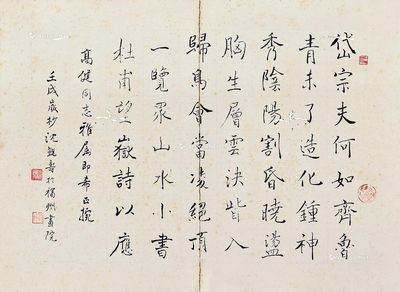 岱宗夫何如齊魯
青未了造化鍾神
秀陰陽割昏曉盪
胸生層雲決眥入
歸鳥會當凌絕頂
一覽眾山水小書
杜甫望嶽詩以應
高健同志雅屬即希正挽
壬戌歲杪沈觀壽於揚州畫院